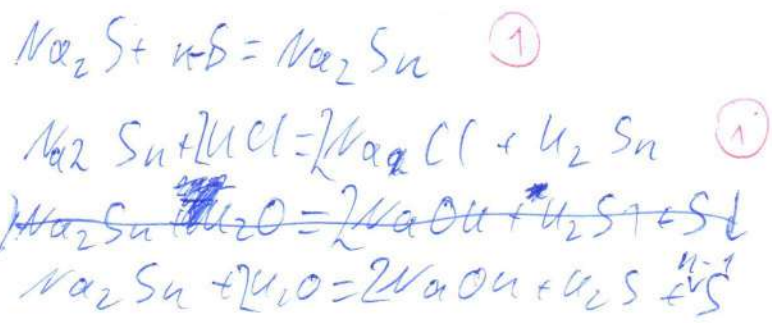 Na2S + n-S = Na2Sn 1
Na2 Sn + 2HCl = 2Naa Cl + H2 Sn 1
Na2Sn + H2O = 2NaOH + H2S + S↓
Na2 Sn + 2H2O = 2NaOH + H2S + n-1 S